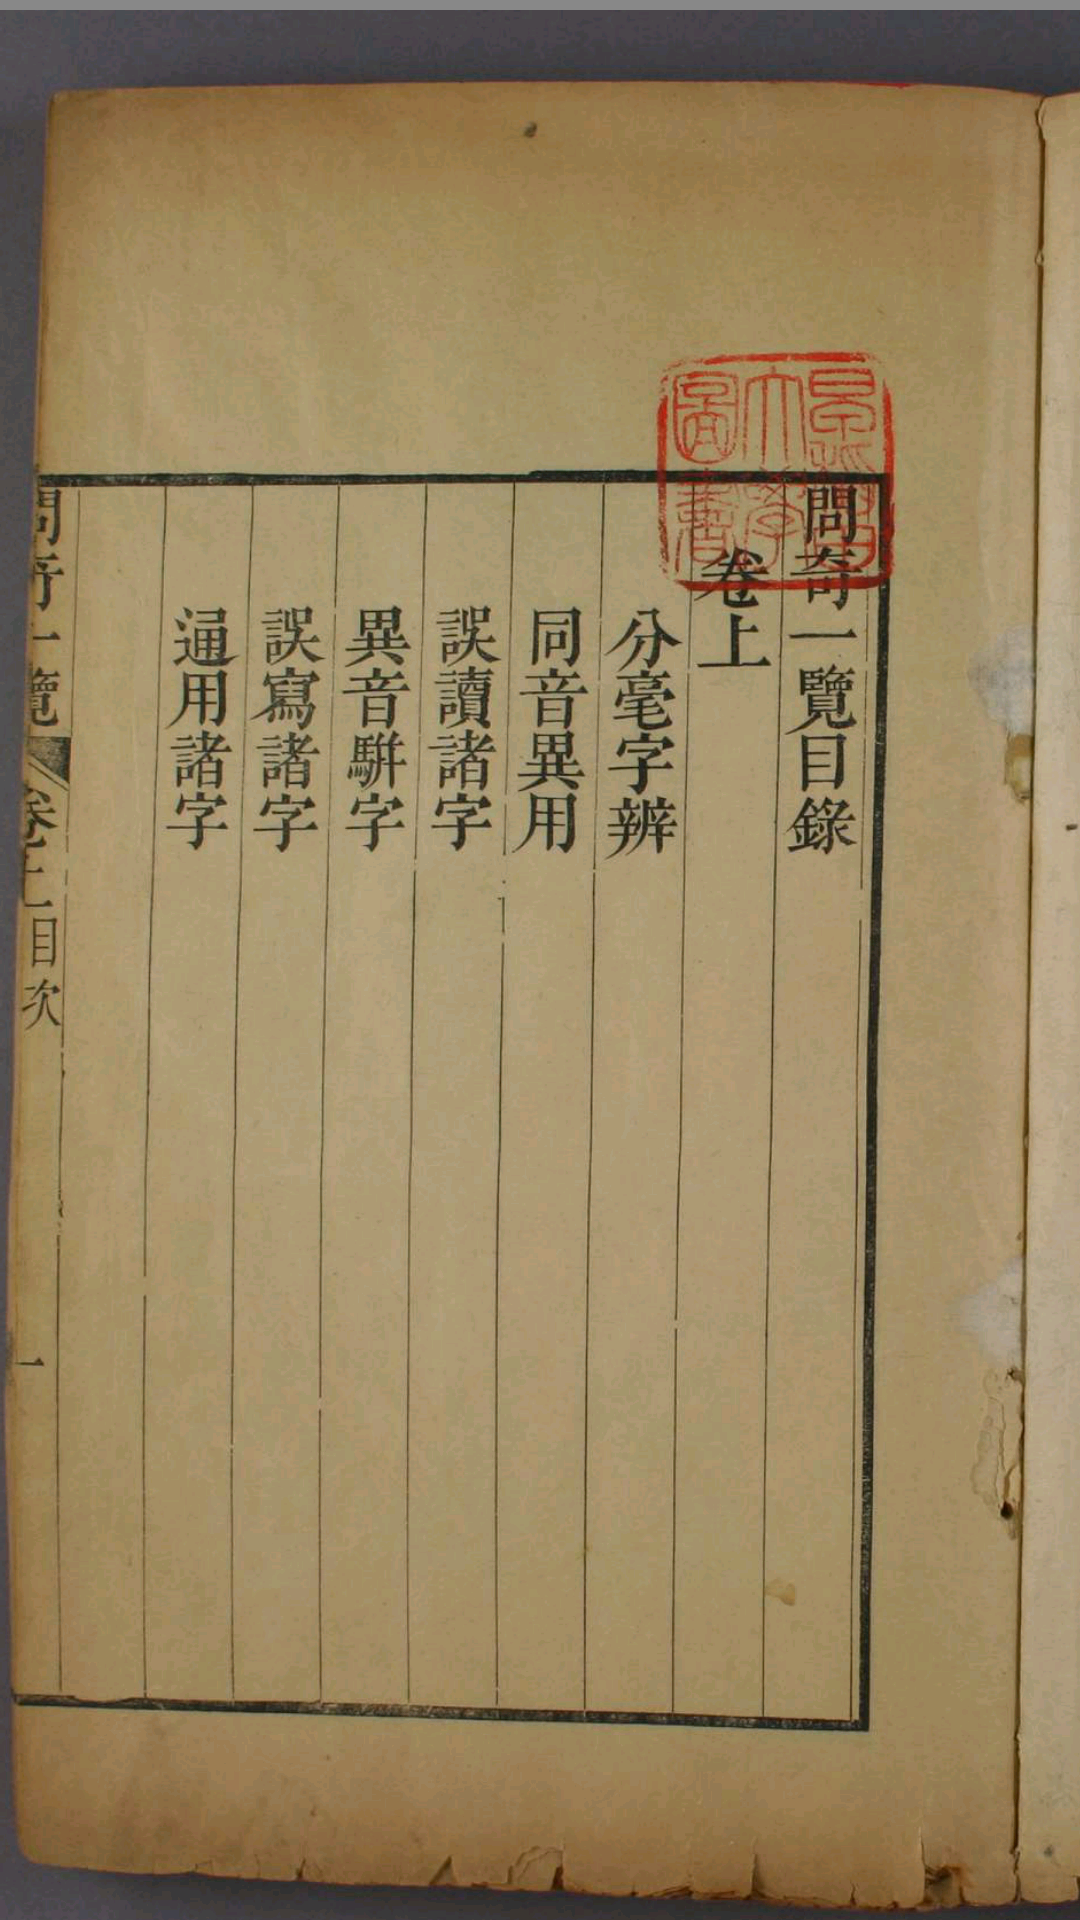 問奇一覽目錄
卷上
分毫字辨
同音異用
誤讀諸字
異音駢字
誤寫諸字
通用諸字
問奇一覽
卷上目次
一
大學圖書